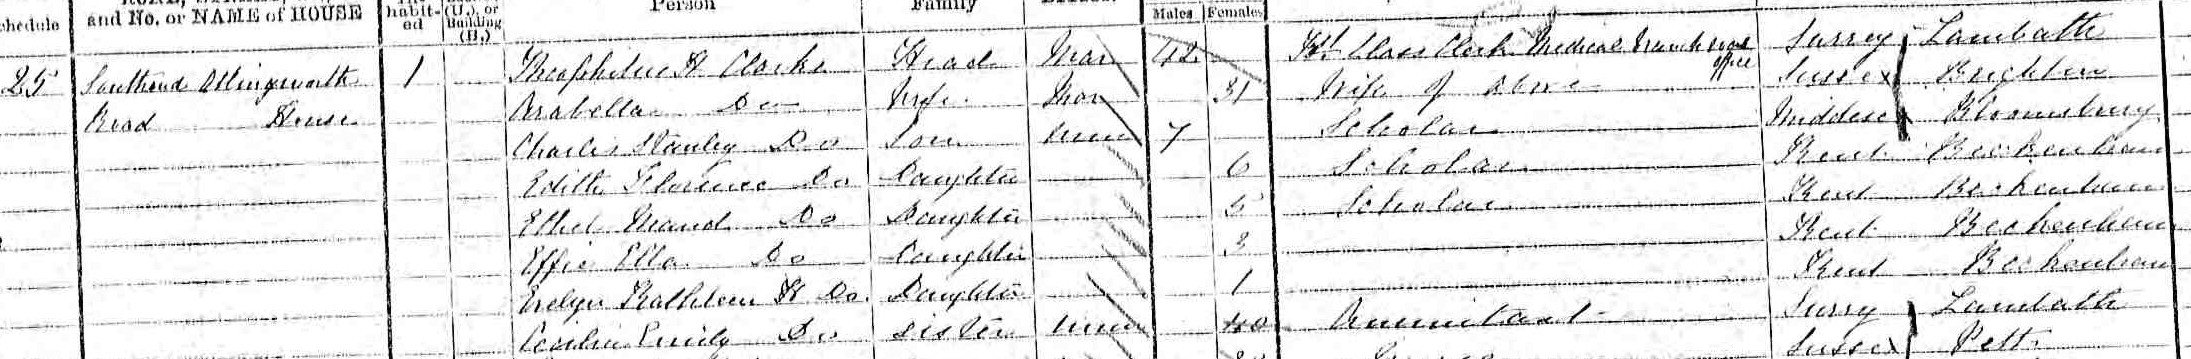 and No. or NAME of HOUSE habit- (U.), or Person Family
chedule ed Building (B.) Males Females
25 Southend 1 Theophilus H Clarke Head Mar 42 1st Class Clerk Medical Branch Office Surrey Lambeth
Road House Arabella Do Wife Mar 31 Wife of above Sussex Brighton
Charles Stanley Do Son Unm 7 Scholar Middlesex Bloomsbury
Edith Florence Do Daughter 6 Scholar Kent Beckenham
Ethel Maud Do Daughter 5 Scholar Kent Beckenham
Effie Ella Do Daughter 3 Kent Beckenham
Evelyn Kathleen H Do Daughter 1 Kent Beckenham
Emily Do Sister Unm 40 Annuitant Surry Lambeth
Sussex Pett